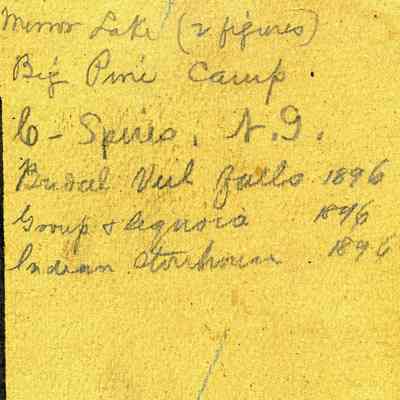 Mirror Lake (2 figures)
Big Pine Camp.
C - Spires, N.G.
Bridal Veil Falls 1896
Group & Sequoia 1896
Indian Storehouse 1896